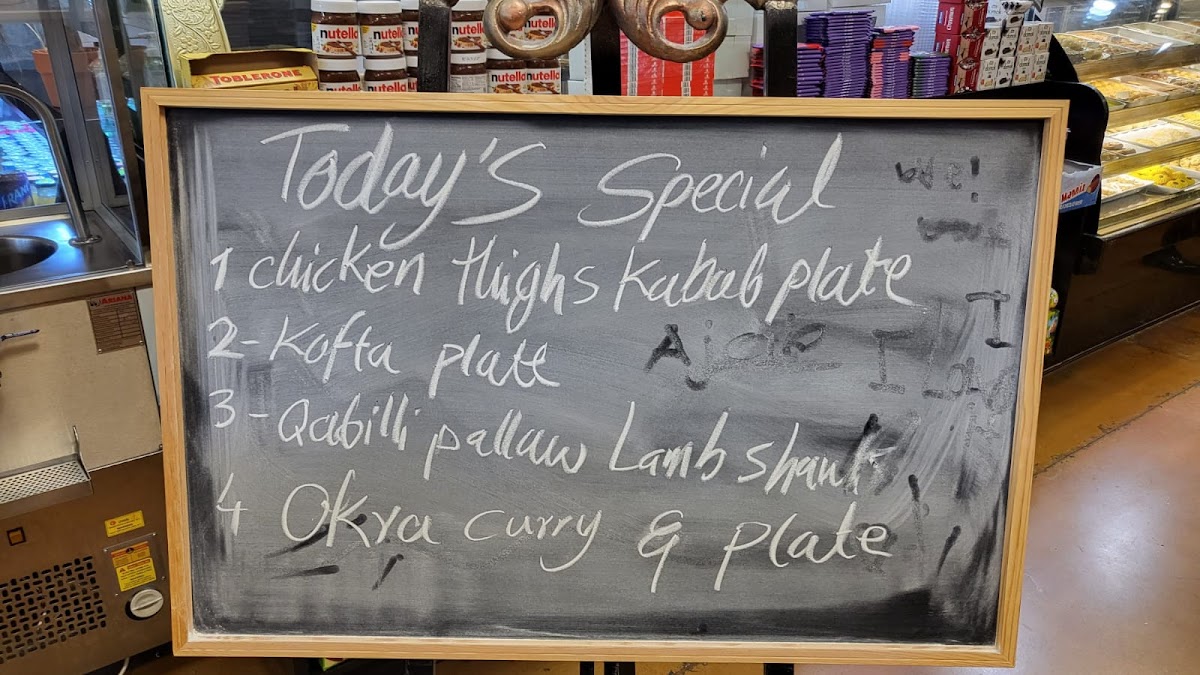 nutella nutella nutella nutella
TOBLERONE
nutella nutella nutella nutella
Today's Special
1 chicken Thighs Kabab plate
2- Kofta plate
3- Qabilli pallaw Lamb shank
4 Okra curry & plate
ARIANA